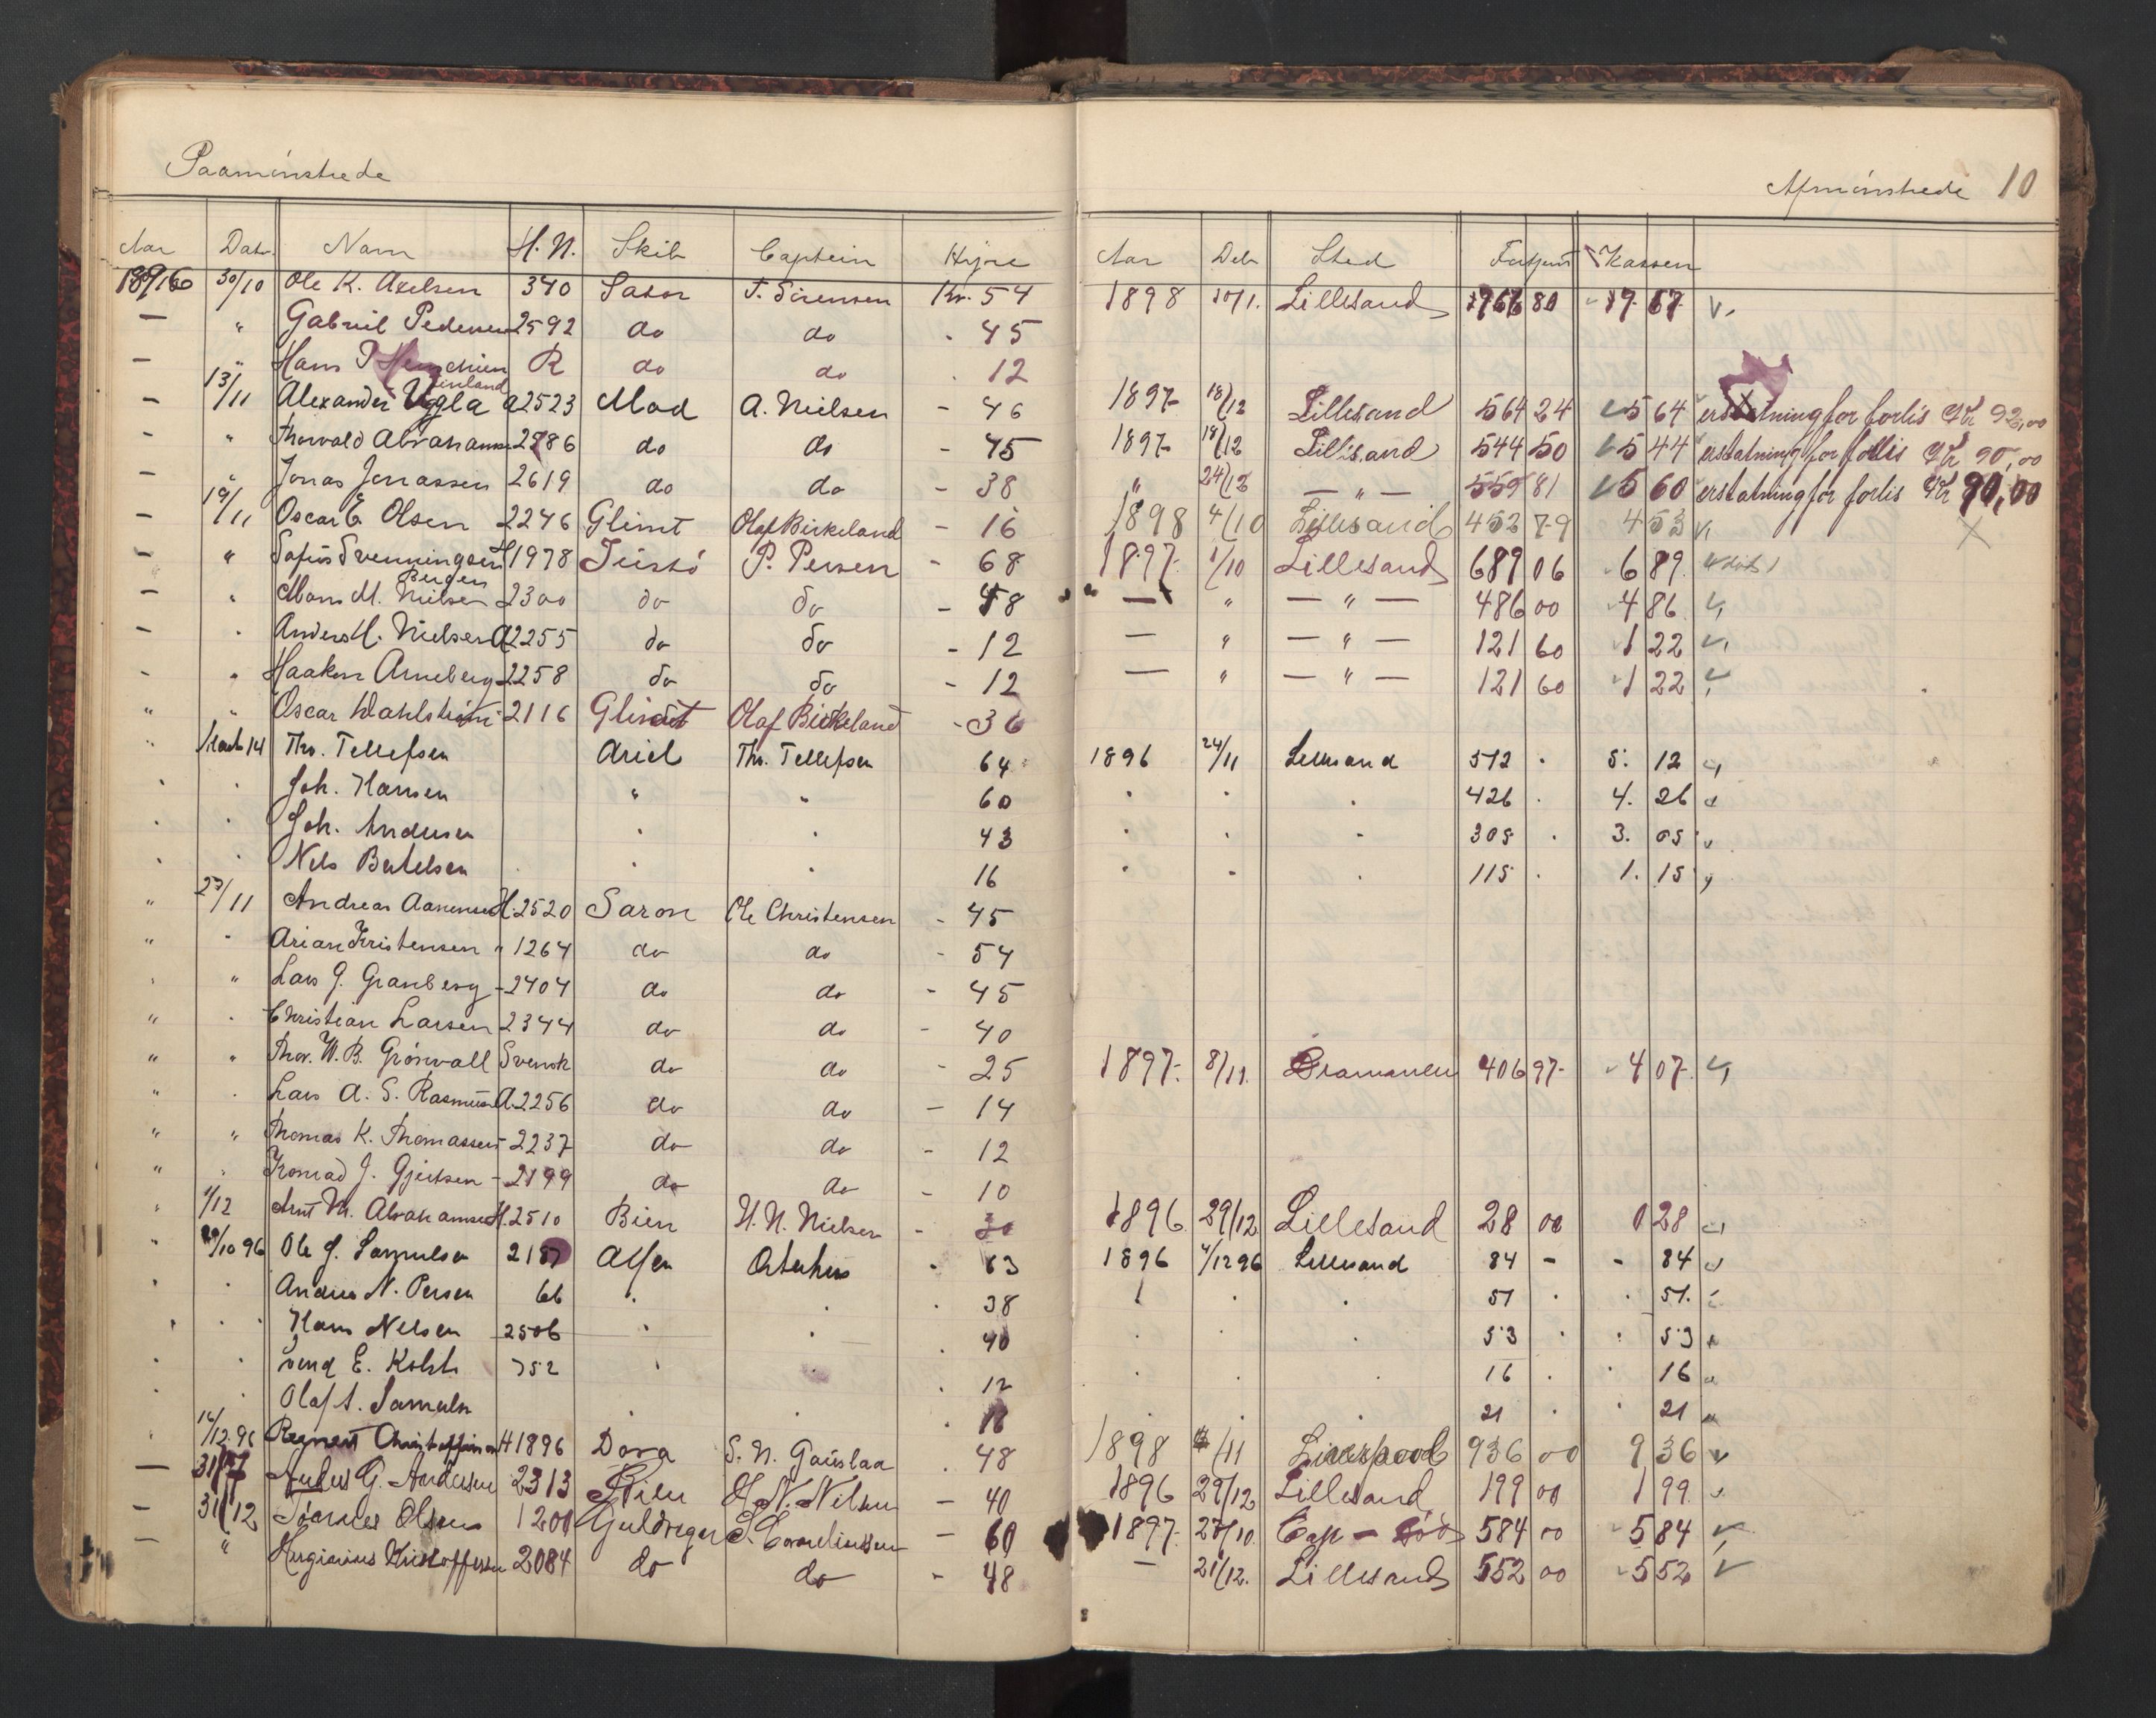 Paamönstrede
Afmönstrede 10
Aar Dato Navn H. N. Skib Captein Hyre Aar Dato Sted Fortjent Kassen
1896 30/10 Ole K. Axelsen 340 Sator T. Sörensen Kr. 54 1898 10/1. Lillesand 1967 80 19. 67 v.
— " Gabriel Pedersen 2592 do do . 45
— " Hans P R do do . 12
- 13/11 Alexander Uggla Finland a2523 Mod A. Nielsen - 46 1897 18/12 Lillesand 564 24 v 5 64 erstatning for forlis Kr 92,00
- " Thorvald Abrahams 2786 do do - 45 1897 18/12 Lillesand 544 50 v 5 44 erstatning for forlis Kr 90,00
- " Jonas Jonassen 2619 do do - 38 " 24/12 — " — 559 81 v 5 60 erstatning for forlis Kr 90,00
- 19/11 Oscar E Olsen 2246 Glimt Olaf Birkeland - 16 1898 4/10 Lillesand 452 79 4 53 v X
- " Sofus Svenningsen H1978 Jüstö P. Persen - 68 1897. 1/10 Lillesand 689 06 6 89.
- " Mons M. Nielsen Bergen 2300 do do - 48 — " — " — 486 00 4 86 v,
- " Anders H. Nielsen A2255 do do - 12 — " — " — 121 60 1 22 v,
- " Haakon Arneberg 2258 do do - 12 — " — " — 121 60 1 22 v,
" " Oscar Wahlström 2116 Glimt Olaf Birkeland - 36
" 14 Thv. Tellefsen Ariel Thv. Tellefsen 64 1896 24/11 Lillesand 512 . 5. 12 v
. . Joh. Hansen " " 60 . . . 426 . 4. 26 v
. . Joh. Andersen . . 43 . . . 305 . 3. 05 v
. . Nels Bertelsen . . 16 . . . 115 . 1. 15 v
" 23/11 Andreas Aanensen H.2520 Saron Ole Christensen - 45
" " Arian Kristensen " 1264 do do - 54
. " Lars G. Granberg - 2404 do do - 45
" . Christian Larsen 2344 do do - 40
" " Thor. W. B. Grönvall Svensk do do - 25 1897. 8/11. Drammen 406 97 4 07 v,
" . Lars A. S. Rasmussen A.2256 do do - 14
" " Thomas K. Thomassen - 2237 do do - 12
" . Konrad J. Gjertsen - 2199 do do - 10
. 1/12 Arnt M. Abrahamsen H.2510 Bien H. N. Nielsen - 30 1896. 29/12 Lillesand 28 00 0 28 v
" 29/10 96 Ole J. Samuelsen 2157 Alfen Osterhus . 63 1896 4/12 96 Lillesand 84 - - 84 v
. . Andreas N. Persen 66 . . . 38 . . . 51 . . 51.
. . Hans Nelsen 2506 . . . 40 . . . 53 . . 53
. . Svend E. Kolst 752 . . . 12 . . . 16 . . 16
. . Olaf S. Samuelsn . . . 16 . . . 21 . . 21
. 14/12.96 Regnert Christoffersen H1896 Dova S. N. Gauslaa . 48 1898 /11 Liverpool 936 00 9 36 v
— Anders G. Andersen 2313 Bien H. N. Nilsen — 40 1896 29/12 Lillesand 199 00 1 99 v
- 31/12 Olsen 1200 Guldregn S. Corneliussen — 60 1897. 27/10. Cap - 584 00 5 84 v
— " Kristoffersen 2084 do do - 48 — 21/12. Lillesand 552 00 5 52 v